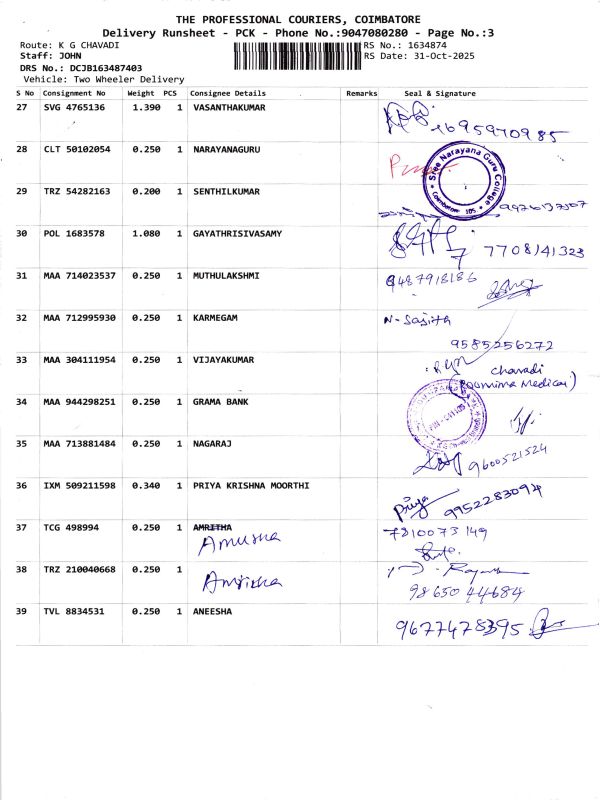 THE PROFESSIONAL COURIERS, COIMBATORE
Delivery Runsheet - PCK - Phone No.:9047080280 - Page No.:3
Route: K G CHAVADI RS No.: 1634874
Staff: JOHN RS Date: 31-Oct-2025
DRS No.: DCJB163487403
Vehicle: Two Wheeler Delivery
S No Consignment No Weight PCS Consignee Details Remarks Seal & Signature
27 SVG 4765136 1.390 1 VASANTHAKUMAR
7695970985
28 CLT 50102054 0.250 1 NARAYANAGURU
Sree Narayana Guru College
Coimbatore 105
29 TRZ 54282163 0.200 1 SENTHILKUMAR
30 POL 1683578 1.080 1 GAYATHRISIVASAMY
7708141323
31 MAA 714023537 0.250 1 MUTHULAKSHMI 9487918186
32 MAA 712995930 0.250 1 KARMEGAM N-Sajith
9585256272
33 MAA 304111954 0.250 1 VIJAYAKUMAR
chavadi
(Poornima Medical)
34 MAA 944298251 0.250 1 GRAMA BANK
35 MAA 713881484 0.250 1 NAGARAJ
9600521524
36 IXM 509211598 0.340 1 PRIYA KRISHNA MOORTHI Priya
9952283094
37 TCG 498994 0.250 1 AMRITHA 7210073149
Amusha
38 TRZ 210040668 0.250 1
9865044684
39 TVL 8834531 0.250 1 ANEESHA
9677478395